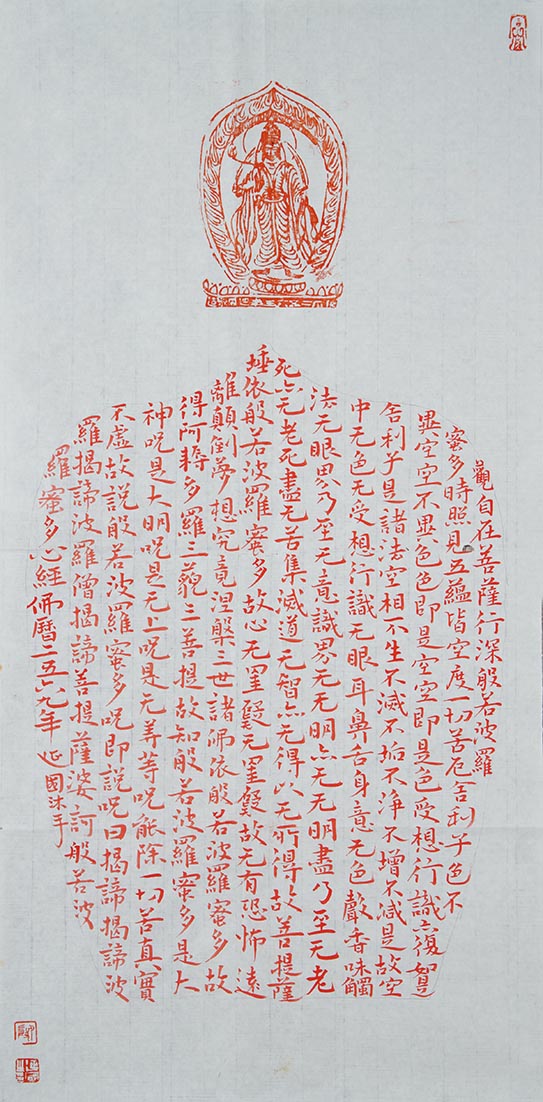 觀自在菩薩行深般若波羅
蜜多時照見五蘊皆空度一切苦厄舍利子色不
異空空不異色色即是空空即是色受想行識亦復如是
舍利子是諸法空相不生不滅不垢不淨不增不減是故空
中无色无受想行識无眼耳鼻舌身意无色聲香味觸
法无眼界乃至无意識界无无明亦无无明盡乃至无老
死亦无老死盡无苦集滅道无智亦无得以无所得故菩提薩
埵依般若波羅蜜多故心无罣礙无罣礙故无有恐怖遠
離顛倒夢想究竟涅槃三世諸佛依般若波羅蜜多故
得阿耨多羅三藐三菩提故知般若波羅蜜多是大
神呪是大明呪是无上呪是无等等呪能除一切苦真實
不虛故說般若波羅蜜多呪即說呪曰揭諦揭諦波
羅揭諦波羅僧揭諦菩提薩婆訶般若波
羅蜜多心經 佛曆二五六九年 延國沐手